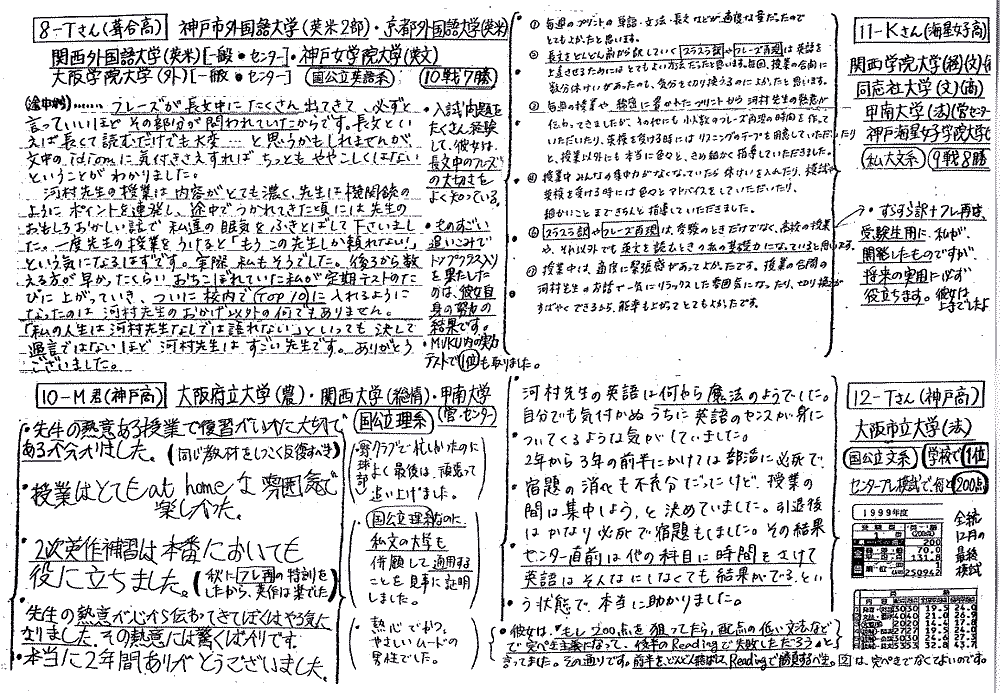 8-Tさん(葺合高) 神戸市外国語大学(英米2部)・京都外国語大学(英米)
関西外国語大学(英米)[一般・センター]・神戸女学院大学(英文)
大阪学院大学(外)[一般・センター] (国公立英語系) 10戦7勝
(途中略)……フレーズが長文中にたくさん出てきて、必ずと
言っていいほどその部分が問われていたからです。長文とい
えば長くて読むだけでも大変…と思うかもしれませんが、
文中のidiomに気付きさえすればちっともややこしくはない
ということがわかりました。
河村先生の授業は内容がとても濃く、先生は機関銃の
ようにポイントを連発し、途中でつかれてきた頃には先生の
おもしろおかしい話で私達の眠気をふきとばして下さいまし
た。一度先生の授業をうけると「もうこの先生しか頼れない!」
という気になるはずです。実際、私もそうでした。後ろから数
える方が早かったくらいおちこぼれていた私が定期テストのた
びに上がっていき、ついに校内でTOP10に入れるように
なったのは河村先生のおかげ以外の何でもありません。
「私の人生は河村先生なしでは語れない」といっても決して
過言ではないほど河村先生はすごい先生です。ありがとう
ございました。
・入試問題を
たくさん経験
して、彼女は、
長文中のフレーズ
の大切さを
よく知っている。
・ものすごい
追いこみで
トップクラス入り
を果たした
のは、彼女自
身の努力の
結果です。
・MUKU内の実力
テストで1位も取りました。
① 毎週のプリントの単語・文法・長文などが適度な量だったので
とてもよかったと思います。
② 長文をどんどん前から訳していくスラスラ訳やフレーズ再現は英語を
上達させるためにはとてもよい方法だったと思います。毎回、授業の合間に
数分休けいがあったのも、気分を切り換えるのによかったと思います。
③ 毎週の授業や
プリントから河村先生の熱意が
伝わってきましたが、その他にも小人数のフレーズ再現の時間を作って
いただいたり、英検を受ける時にはリスニングのテープを用意していただいたり
と、授業以外にも本当に色々と、きめ細かく指導していただきました。
④ 授業中みんなの集中力がなくなっていたら休けいを入れたり、模試や
英検を受ける時には色々とアドバイスをしていただいたり、
細かいことまできちんと指導していただきました。
スラスラ訳やフレーズ再現は、受験のときだけでなく、高校の授業
や、それ以外でも英文を読むときの私の基礎力になっていると思います。
授業中は、適度に緊張感があってよかったです。授業の合間の
河村先生のお話で一気にリラックスした雰囲気になったり、切り換えが
すばやくできるから、能率も上がってとてもよかったです。
11-Kさん(海星女子高)
関西学院大学(経)(文)
同志社大学(文)(商)
甲南大学(法)(営・センター)
神戸海星女子学院大学
(私大文系) 9戦8勝
・すらすら訳+フレ再は、
受験生用に、私が、
開発したものですが、
将来の実用に必ず
役立ちます。彼女は
上手でしたよ
10-M君(神戸高) 大阪府立大学(農)・関西大学(総情)・甲南大学
(営・センター)
国公立理系
・先生の熱意ある授業で復習がいかに大切で
あるか分かりました。(同じ教材をしつこく反復すべき)
・授業はとてもat homeな雰囲気で
楽しかった。
・2次英作補習は本番においても
役に立ちました。(秋にフレ再の特訓を
したから、英作は楽でした)
・先生の熱意が心から伝わってきてぼくはやる気に
なりました。その熱意には驚くばかりです。
・本当に2年間ありがとうございました。
・野球部
クラブで忙しかったのに
よく最後は、頑張って
追い上げました。
・国公立理系なのに、
私文の大学も
併願して通用する
ことを見事に証明
しました。
・熱心でかつ、
やさしいムードの
男性でした。
河村先生の英語は何やら魔法のようでした。
自分でも気付かぬうちに英語のセンスが身に
ついてくるような気がしていました。
2年から3年の前半にかけては部活に必死で、
宿題の消化も不充分だったけど、授業の
間は集中しよう、と決めていました。引退後
はかなり必死で宿題もしました。その結果
センター直前は他の科目に時間をさけて
英語はそんなにしなくても結果がでる、とい
う状態で、本当に助かりました。
・彼女は、"もし200点を狙ってたら、配点の低い文法など
で完ぺき主義になって、後半のReadingで失敗しただろう"と
言ってました。その通りです。前半をどんどん結ばれ、Readingで勝負するべき。2は、完ぺきでなくてよいのです。
12-Tさん(神戸高)
大阪市立大学(法)
国公立文系 学校で1位
センタープレ模試で、何と200点
1999年度
全統
12月の
最終
模試
200
70.0
131.8
1
250942